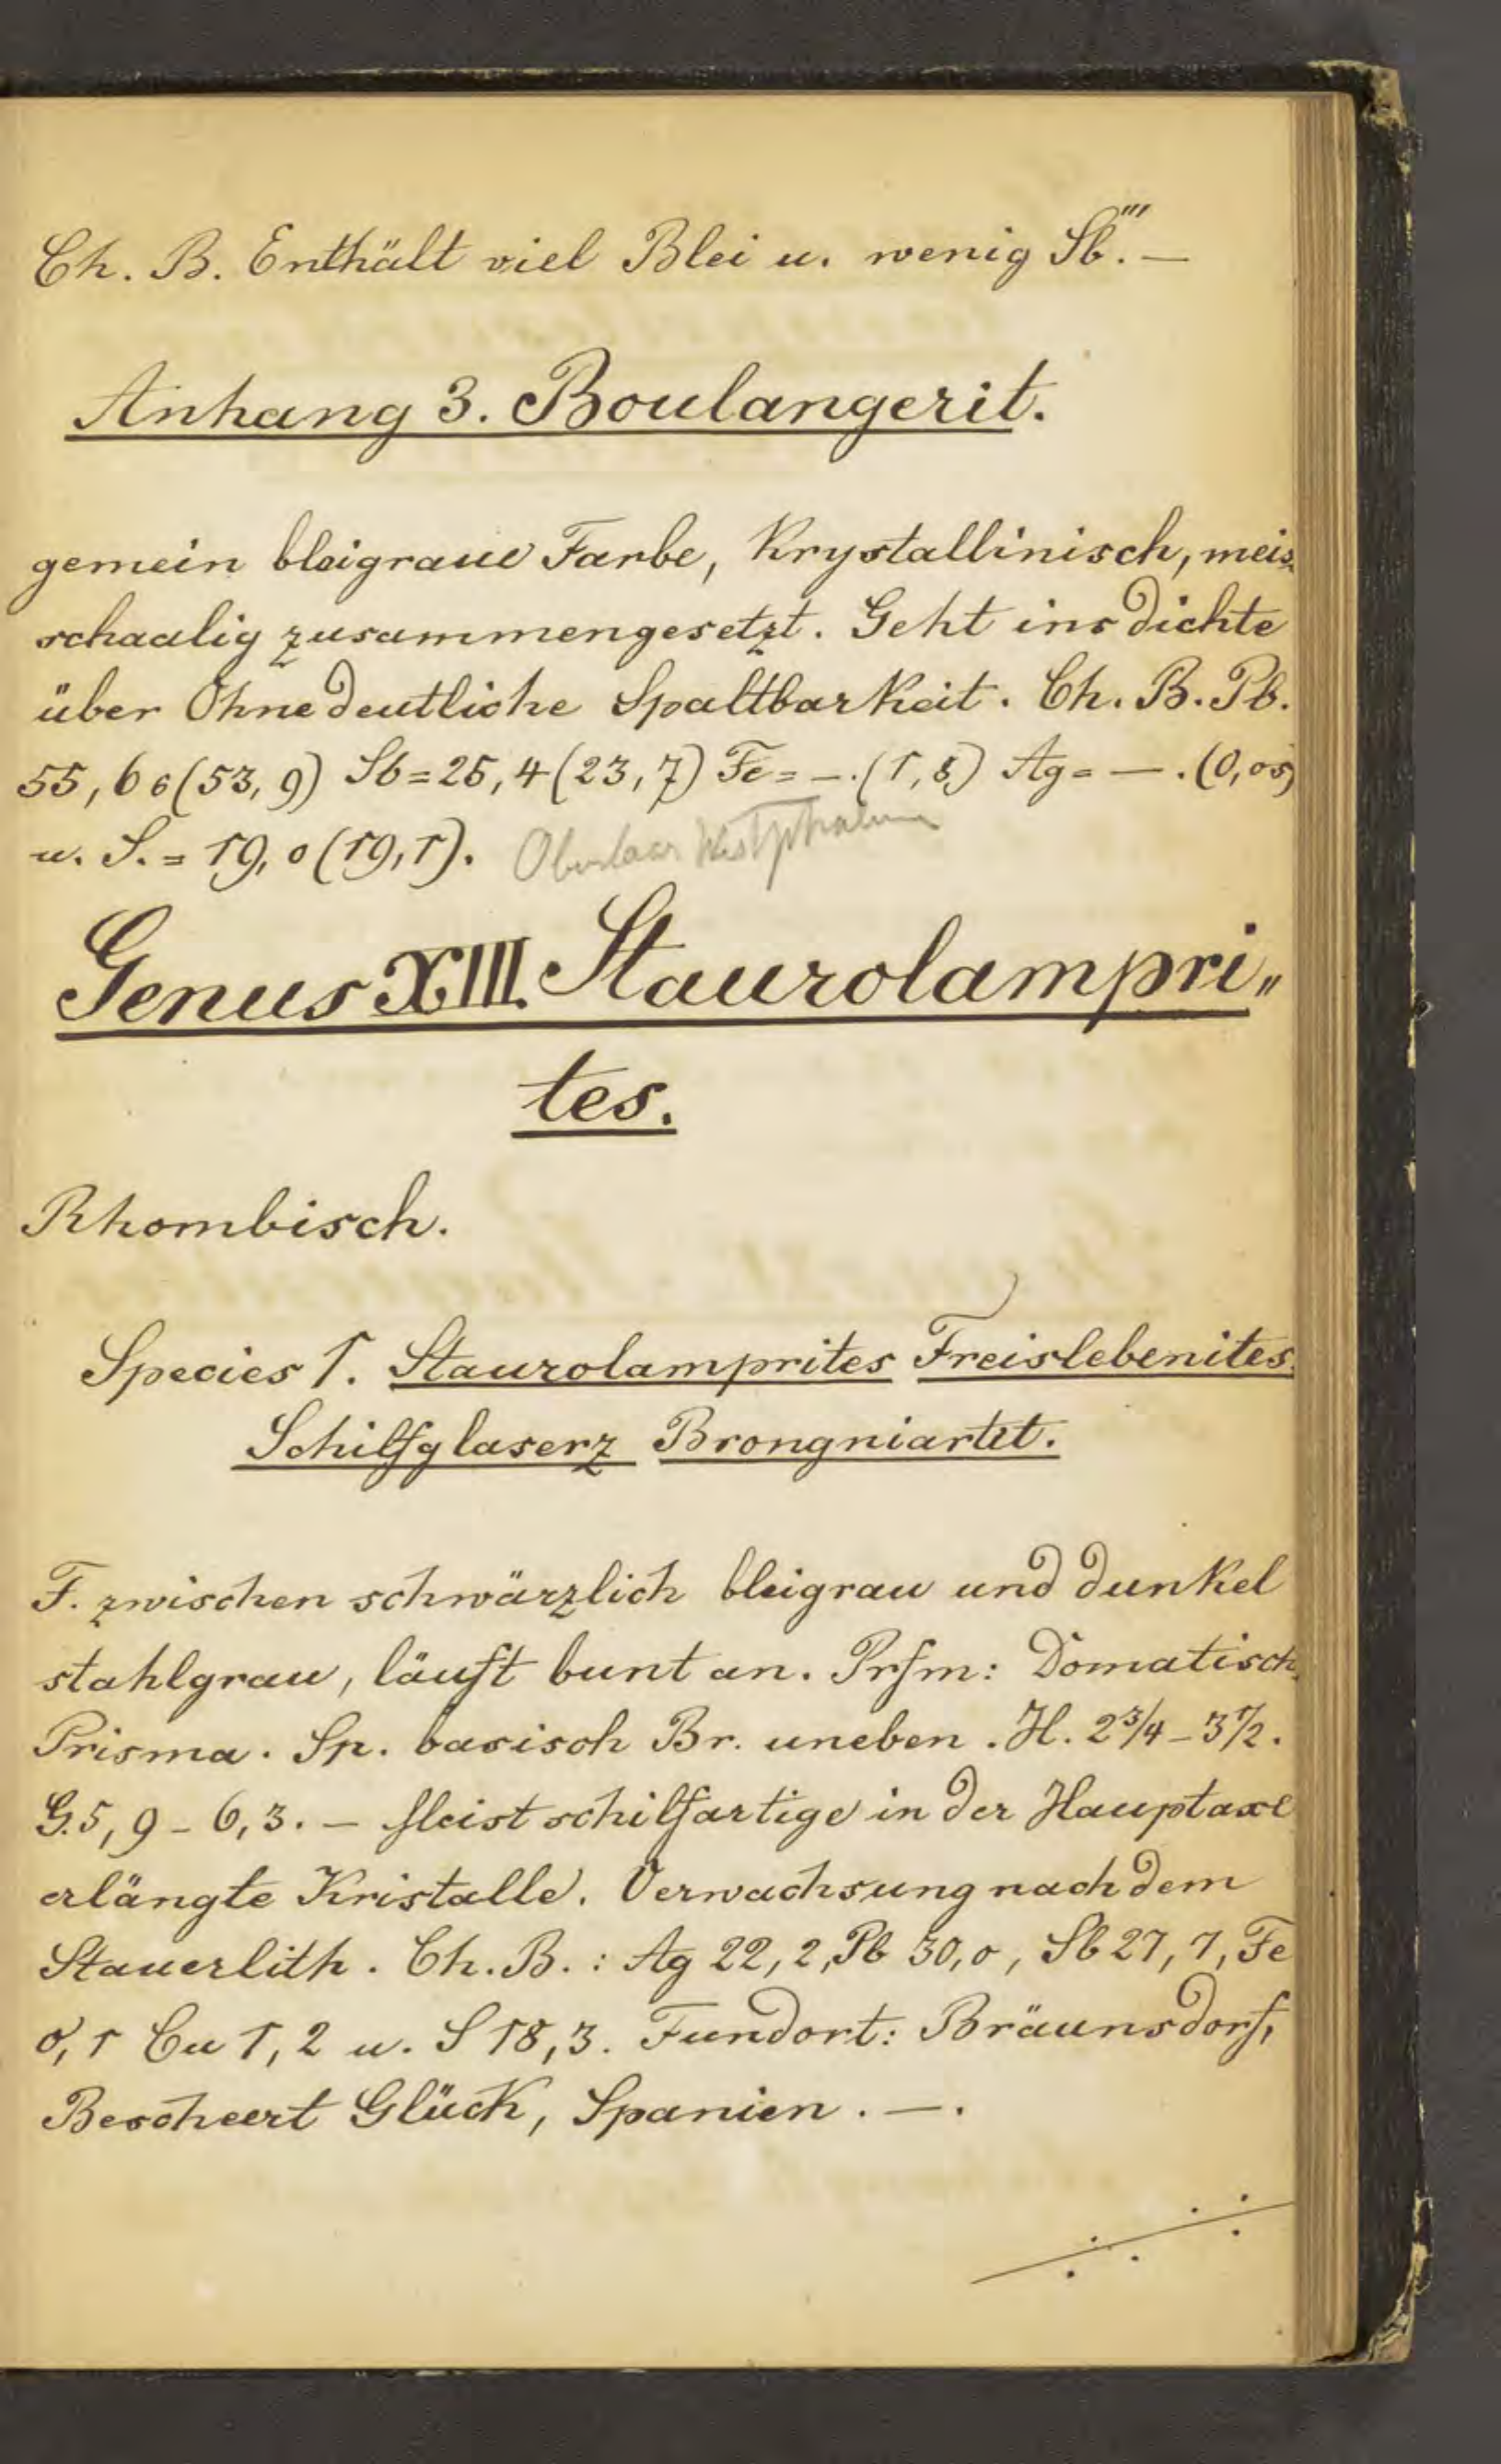 Ch. B. Enthält viel Blei u. wenig Sb'''. —
Anhang 3. Boulangerit.
gemein bleigraue Farbe, Krystallinisch, meis
schaalig zusammengesetzt. Geht ins dichte
über Ohne deutliche Spaltbarkeit. Ch. B. Pb.
55,66 (53,9) Sb = 25,4 (23,7) Fe = —. (1,8) Ag = — . (0,05)
u. S. = 19,0 (19,1). Westphalen
Genus XIII. Staurolampri„
tes.
Rhombisch.
Species 1. Staurolamprites Freislebenites.
Schilfglaserz Brongniartit.
F. zwischen schwärzlich bleigrau und dunkel
stahlgrau, läuft bunt an. Prfm: Domatisch.
Prisma. Sp. basisch Br. uneben. H. 2 3/4 – 3 1/2.
G. 5,9 – 6,3. — Meist schilfartige in der Hauptaxe
erlängte Kristalle. Verwachsung nach dem
Stauerlith. Ch. B.: Ag 22,2, Pb 30,0, Sb 27,7, Fe
0,1 Cu 1,2 u. S 18,3. Fundort: Bräunsdorf,
Bescheert Glück, Spanien. —.